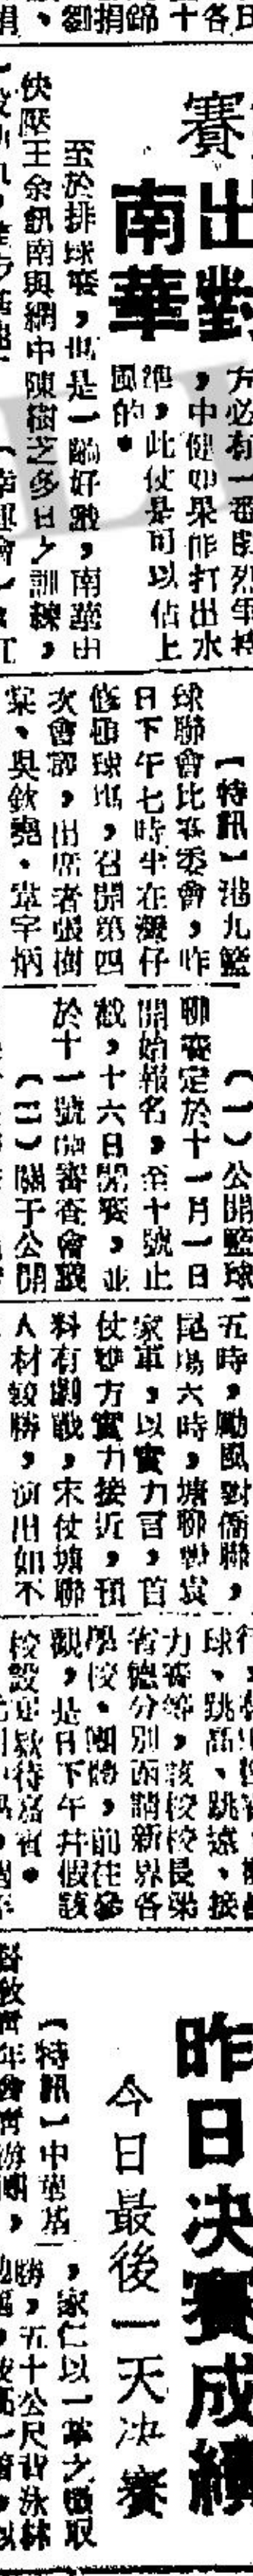 劉捐錦十各
賽
出對
南華
方必有一番劇烈爭持
，中健如果能打出水
準，此仗是可以佔上
風的。
至於排球賽，也是一齣好戲，南華由
快壓王余訊南與網中陳樹芝多日之訓練，
【特訊】港九籃
球聯會比賽委會，昨
日下午七時半在灣仔
修頓球場，召開第四
次會議，出席者張樹
棠、吳欽堯、韋宇炳
（一）公開籃球
聯賽定於十一月一日
開始報名，至十號止
截，十六日開賽，並
於十一號晚審查會議
（二）關于公開
五時，勵風對僑聯，
尾場六時，塘聯對袁
家軍，以實力言，首
仗雙方實力接近，預
料有劇戰，末仗塘聯
人材較勝，演出如不
球、跳高、跳遠、接
力賽等，該校校長梁
省德分別函請新界各
學校、團體，前往參
觀，是日下午并假該
校設筵欵待嘉賓。
昨日決賽成績
今日最後一天決賽
【特訊】中華基
督教青年會
，家仁以一掌之順取
勝，五十公尺背泳林